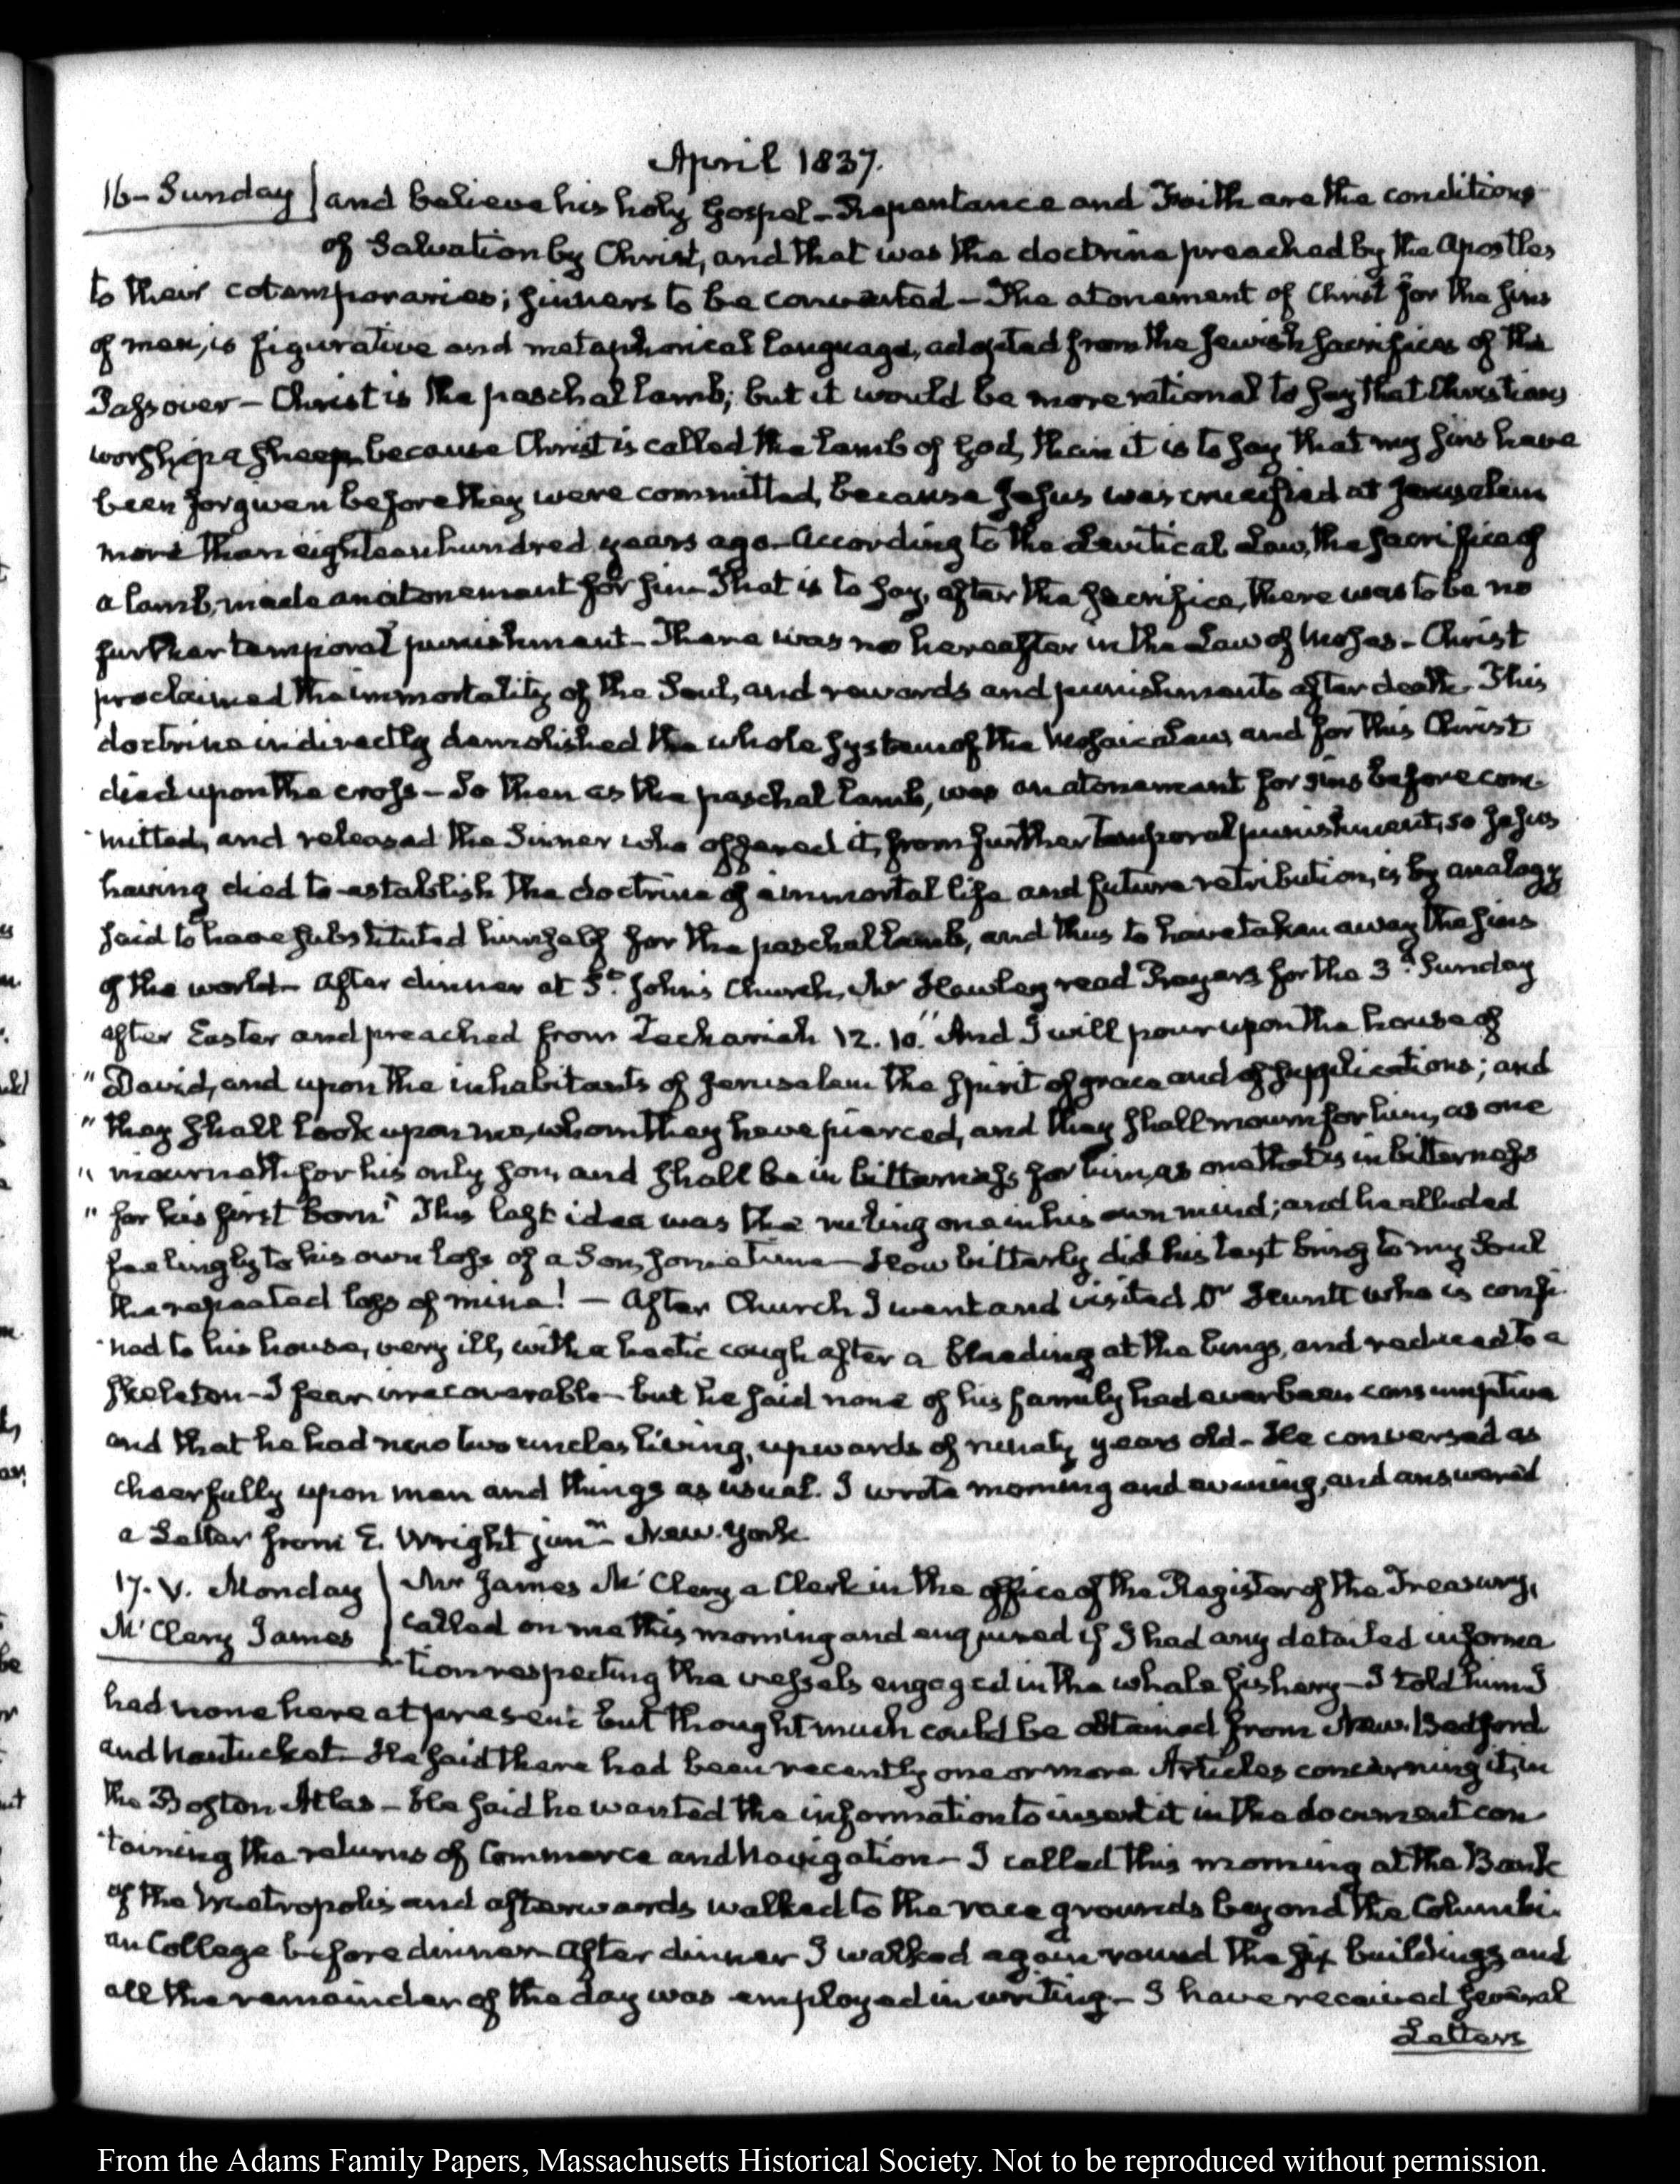 April 1837.
16 - Sunday
and believe his holy Gospel - Repentance and Faith are the conditions
of Salvation by Christ, and that was the doctrine preached by the Apostles
to their cotemporaries; sinners to be converted - The atonement of Christ for the sins
of men, is figurative and metaphorical language, adopted from the Jewish sacrifices of the
Passover - Christ is the paschal lamb; but it would be more rational to say that Christians
worship a sheep because Christ is called the Lamb of God, than it is to say that my sins have
been forgiven before they were committed, because Jesus was crucified at Jerusalem
more than eighteen hundred years ago - According to the Levitical Law, the sacrifice of
a lamb, made an atonement for sin - That is to say, after the sacrifice, there was to be no
further temporal punishment - There was no hereafter in the Law of Moses - Christ
proclaimed the immortality of the Soul, and rewards and punishments after death. This
doctrine indirectly demolished the whole system of the Mosaic Law, and for this Christ
died upon the cross - So then as the paschal lamb, was an atonement for sins before com-
-mitted, and released the Sinner who offered it, from further temporal punishment, so Jesus
having died to establish the doctrine of immortal life and future retribution, is by analogy
said to have substituted himself for the paschal lamb, and thus to have taken away the sins
of the world - After dinner at St. John's Church, Mr Hawley read Prayers for the 3d. Sunday
after Easter and preached from Zechariah 12. 10. "And I will pour upon the house of
" David, and upon the inhabitants of Jerusalem the spirit of grace and of supplications; and
" they shall look upon me, whom they have pierced, and they shall mourn for him, as one
" mourneth for his only son, and shall be in bitterness for him, as one that is in bitterness
" for his first born" This last idea was the ruling one in his own mind; and he alluded
feelingly to his own loss of a Son, some time - How bitterly did his text bring to my Soul
the repeated loss of mine! - After Church I went and visited Dr Hunt who is confi-
-ned to his house, very ill, with a hectic cough after a bleeding at the lungs, and reduced to a
skeleton - I fear irrecoverable - but he said none of his family had ever been consumptive
and that he had now two uncles living, upwards of ninety years old - He conversed as
cheerfully upon men and things as usual. I wrote morning and evening, and answered
a Letter from E. Wright junr. New-York.
17. V. Monday
McClery James
Mr James McClery, a Clerk in the office of the Register of the Treasury,
called on me this morning and enquired if I had any detailed informa
-tion respecting the vessels engaged in the whale fishery - I told him I
had none here at present but thought much could be obtained from New-Bedford
and Nantucket - He said there had been recently one or more Articles concerning it, in
the Boston Atlas - He said he wanted the information to insert it in the document con
-taining the returns of Commerce and Navigation - I called this morning at the Bank
of the Metropolis and afterwards walked to the race grounds beyond the Columbi-
an College before dinner - After dinner I walked again round the six buildings, and
all the remainder of the day was employed in writing - I have received several
Letters
From the Adams Family Papers, Massachusetts Historical Society. Not to be reproduced without permission.